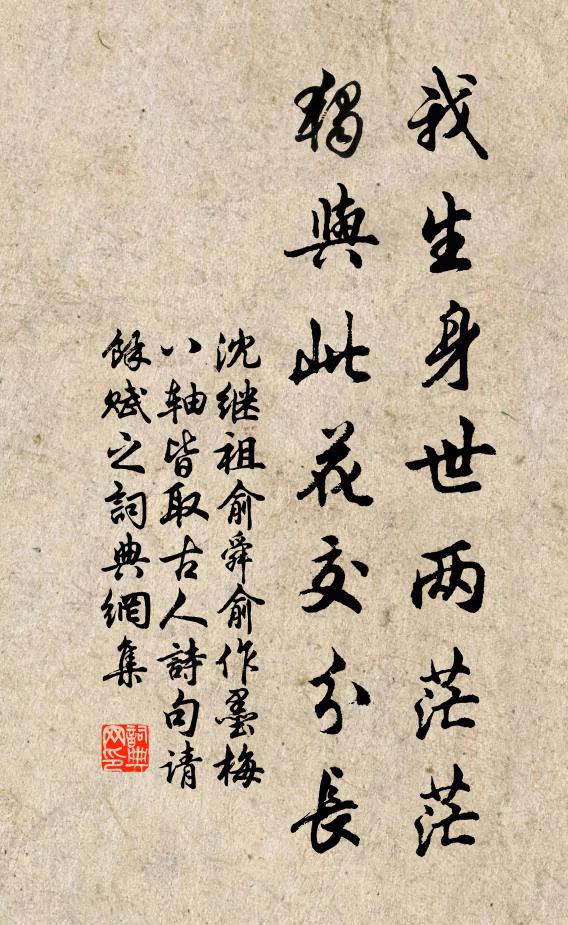 我生身世两茫茫
獨與此花交分長
沈继祖俞舜俞作墨梅
八軸皆取古人詩句请
馀赋之詞典網集
詞典
网印